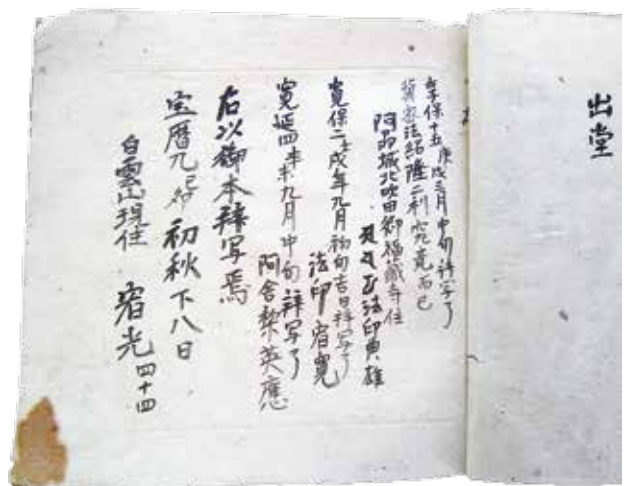 出堂
享保十五庚戌三月中旬拝写了
冀密法紹隆二利究竟而已
阿州城北吹田御福蔵寺住
法印典雄
寛保二壬戌年九月初旬吉日拝写了
法印宥寛
寛延四辛未九月中旬拝写了
阿舎梨英應
右以御本拝写焉
宝暦九己卯初秋下八日
白雲山現住 宥光四十四